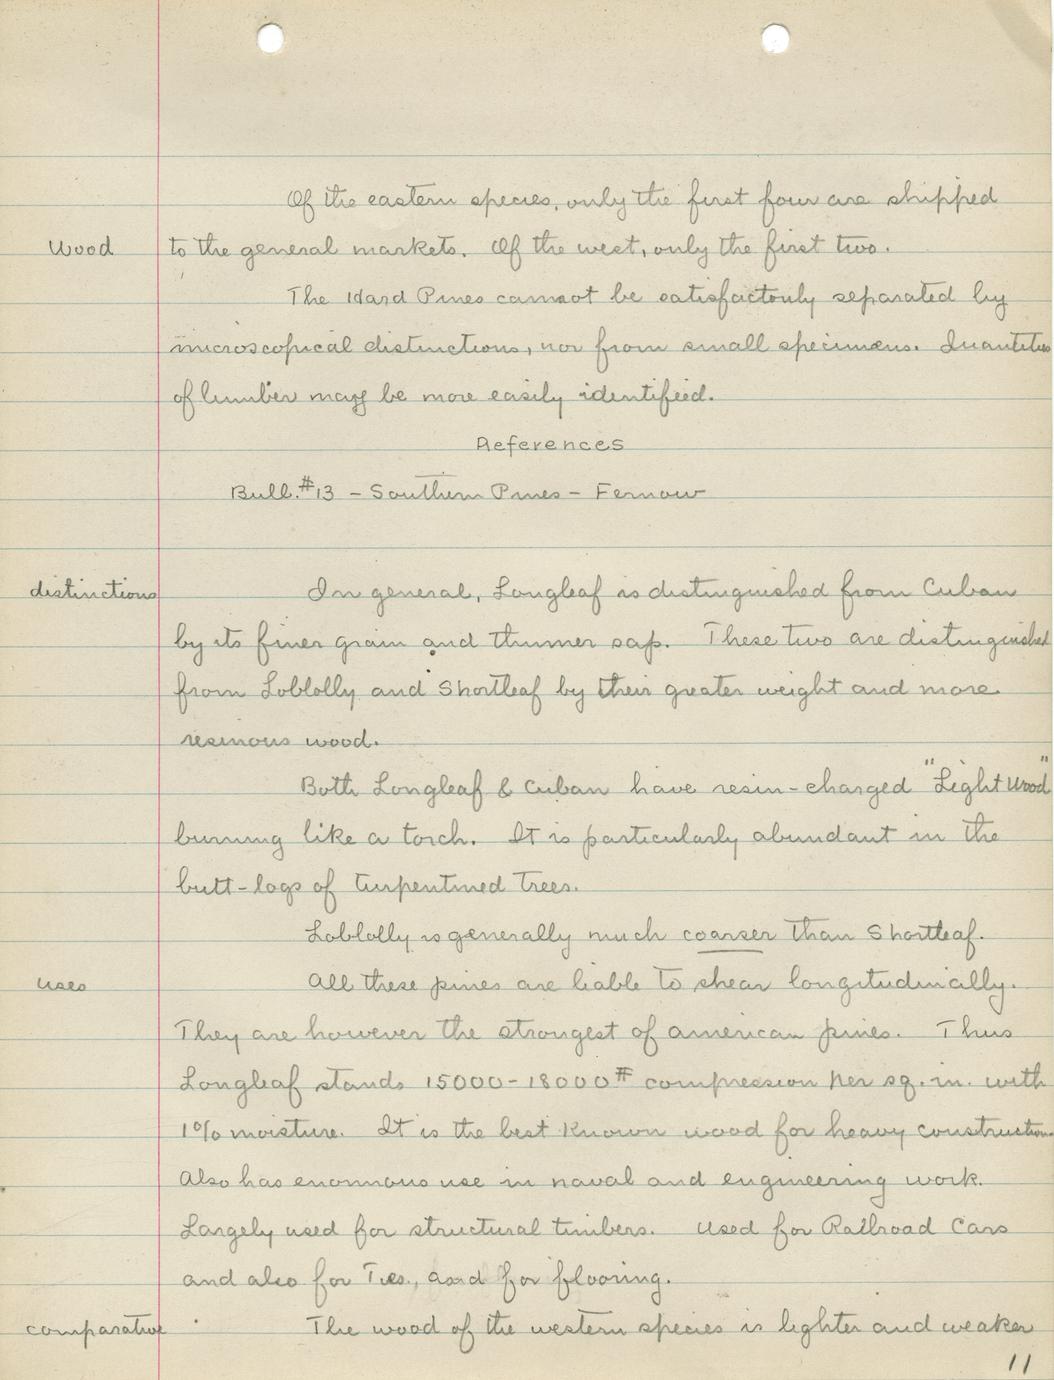 Of the eastern species, only the first four are shipped
Wood to the general markets. Of the west, only the first two.
The Hard Pines cannot be satisfactorily separated by
microscopical distinctions, nor from small specimens. Quantities
of lumber may be more easily identified.
References
Bull. #13 - Southern Pines - Fernow
distinctions In general, Longleaf is distinguished from Cuban
by its finer grain and thinner sap. These two are distinguished
from Loblolly and Shortleaf by their greater weight and more
resinous wood.
Both Longleaf & Cuban have resin-charged "Light Wood"
burning like a torch. It is particularly abundant in the
butt-logs of turpentined trees.
Loblolly is generally much coarser than Shortleaf.
uses All these pines are liable to shear longitudinally.
They are however the strongest of american pines. Thus
Longleaf stands 15000-18000# compression per sq. in. with
1% moisture. It is the best known wood for heavy construction.
Also has enormous use in naval and engineering work.
Largely used for structural timbers. Used for Railroad Cars
and also for Ties, and for flooring.
comparative The wood of the western species is lighter and weaker
11